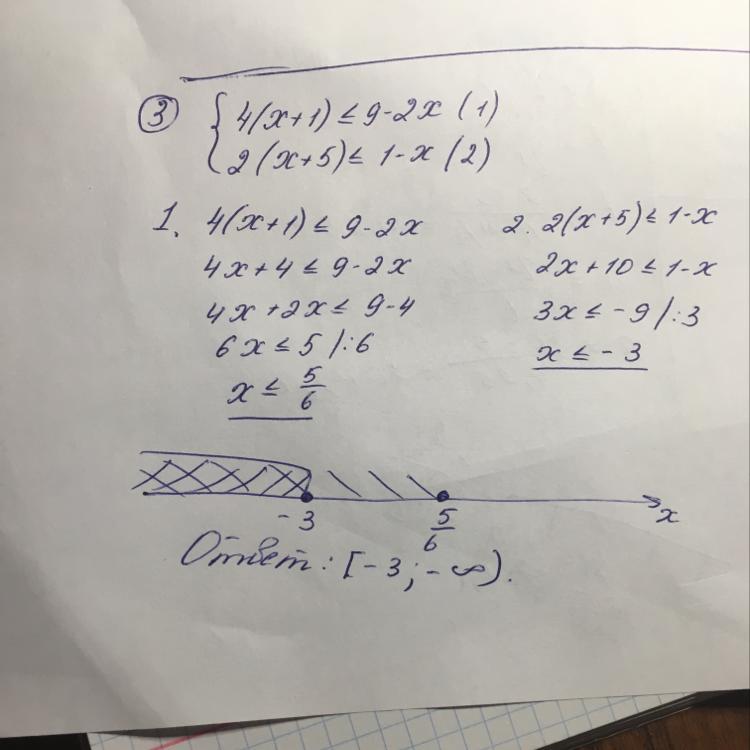 ③ { 4(x+1) ≤ 9-2x (1)
2(x+5) ≤ 1-x (2)
1. 4(x+1) ≤ 9-2x
4x+4 ≤ 9-2x
4x+2x ≤ 9-4
6x ≤ 5 /:6
x ≤ 5/6
2. 2(x+5) ≤ 1-x
2x+10 ≤ 1-x
3x ≤ -9 /:3
x ≤ -3
-3 5/6 x
Ответ: [-3; -∞).